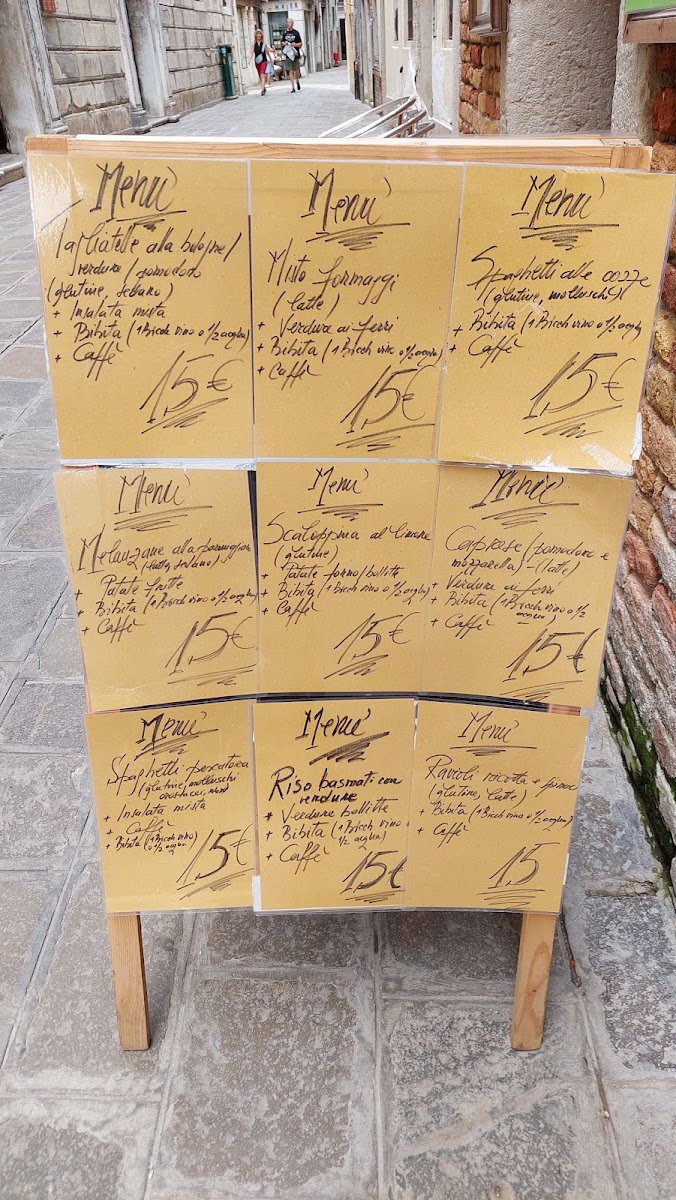 Menù
Tagliatelle alla bologne/
verdure/pomodoro
(glutine, sedano)
+ Insalata mista
+ Bibita (1 Bicch vino o 1/2 acqua)
+ Caffè
15€
Menù
Misto formaggi
(latte)
+ Verdure ai ferri
+ Bibita (1 Bicch vino o 1/2 acqua)
+ Caffè
15€
Menù
Spaghetti alle cozze
(glutine, molluschi)
+ Bibita (1 Bicch vino o 1/2 acqua
+ Caffè
15€
Menù
Melanzane alla parmigiana
(latte, sedano)
+ Patate fritte
+ Bibita (1 Bicch vino o 1/2 acqua)
+ Caffè
15€
Menù
Scaloppina al limone
(glutine)
+ Patate forno/bollite
+ Bibita (1 bicch vino o 1/2 acqua)
+ Caffè
15€
Menù
Caprese (pomodoro e
mozzarella) - (latte)
+ Verdure ai ferri
+ Bibita (1 Bicch vino o 1/2
acqua)
+ Caffè
15€
Menù
Spaghetti pescatora
(glutine, molluschi
crostacei,
+ Insalata mista
+ Caffè
+ Bibita (1 Bicch vino)
o 1/2 acqua)
15€
Menù
Riso basmati con
verdure
+ Verdure bollite
+ Bibita (1 Bicch vino o
1/2 acqua)
+ Caffè
15€
Menù
Ravioli ricotta e spinaci
(glutine, latte)
+ Bibita (1 Bicch vino o 1/2 acqua)
+ Caffè
15